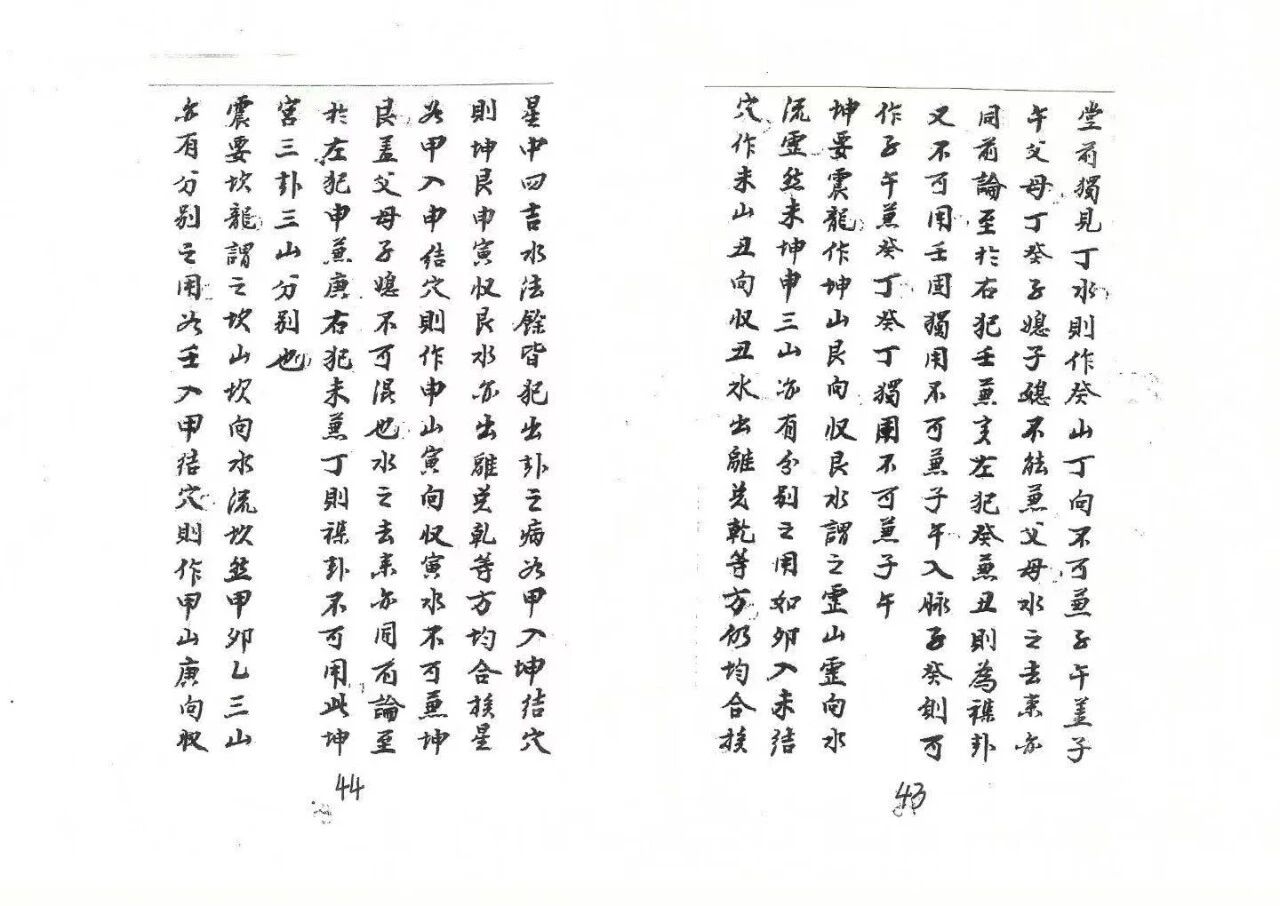 堂前獨見丁水則作癸山丁向不可兼子午盖子
午父母丁癸子媳子媳不能兼父母水之去来亦
同前論至於右犯壬兼亥左犯癸兼丑則為襍卦
又不可用壬固獨用不可兼子午入脉子癸則可
作子午兼癸丁癸丁獨用不可兼子午
坤要震龍作坤山艮向収艮水謂之霊山霊向水
流霊然未坤申三山亦有分别之用如卯入未结
穴作未山丑向収丑水出離兑乾等方仍均合挨
43
星中四吉水法餘皆犯出卦之病如甲入坤结穴
則坤艮申寅収艮水亦出離兑乾等方均合挨星
如甲入申结穴則作申山寅向収寅水不可兼坤
艮盖父母子媳不可混也水之去来亦同前論至
於左犯申兼庚右犯未兼丁則襍卦不可用此坤
宮三卦三山分别也
震要坎龍謂之坎山坎向水流坎然甲卯乙三山
亦有分别之用如壬入甲结穴則作甲山庚向収
44